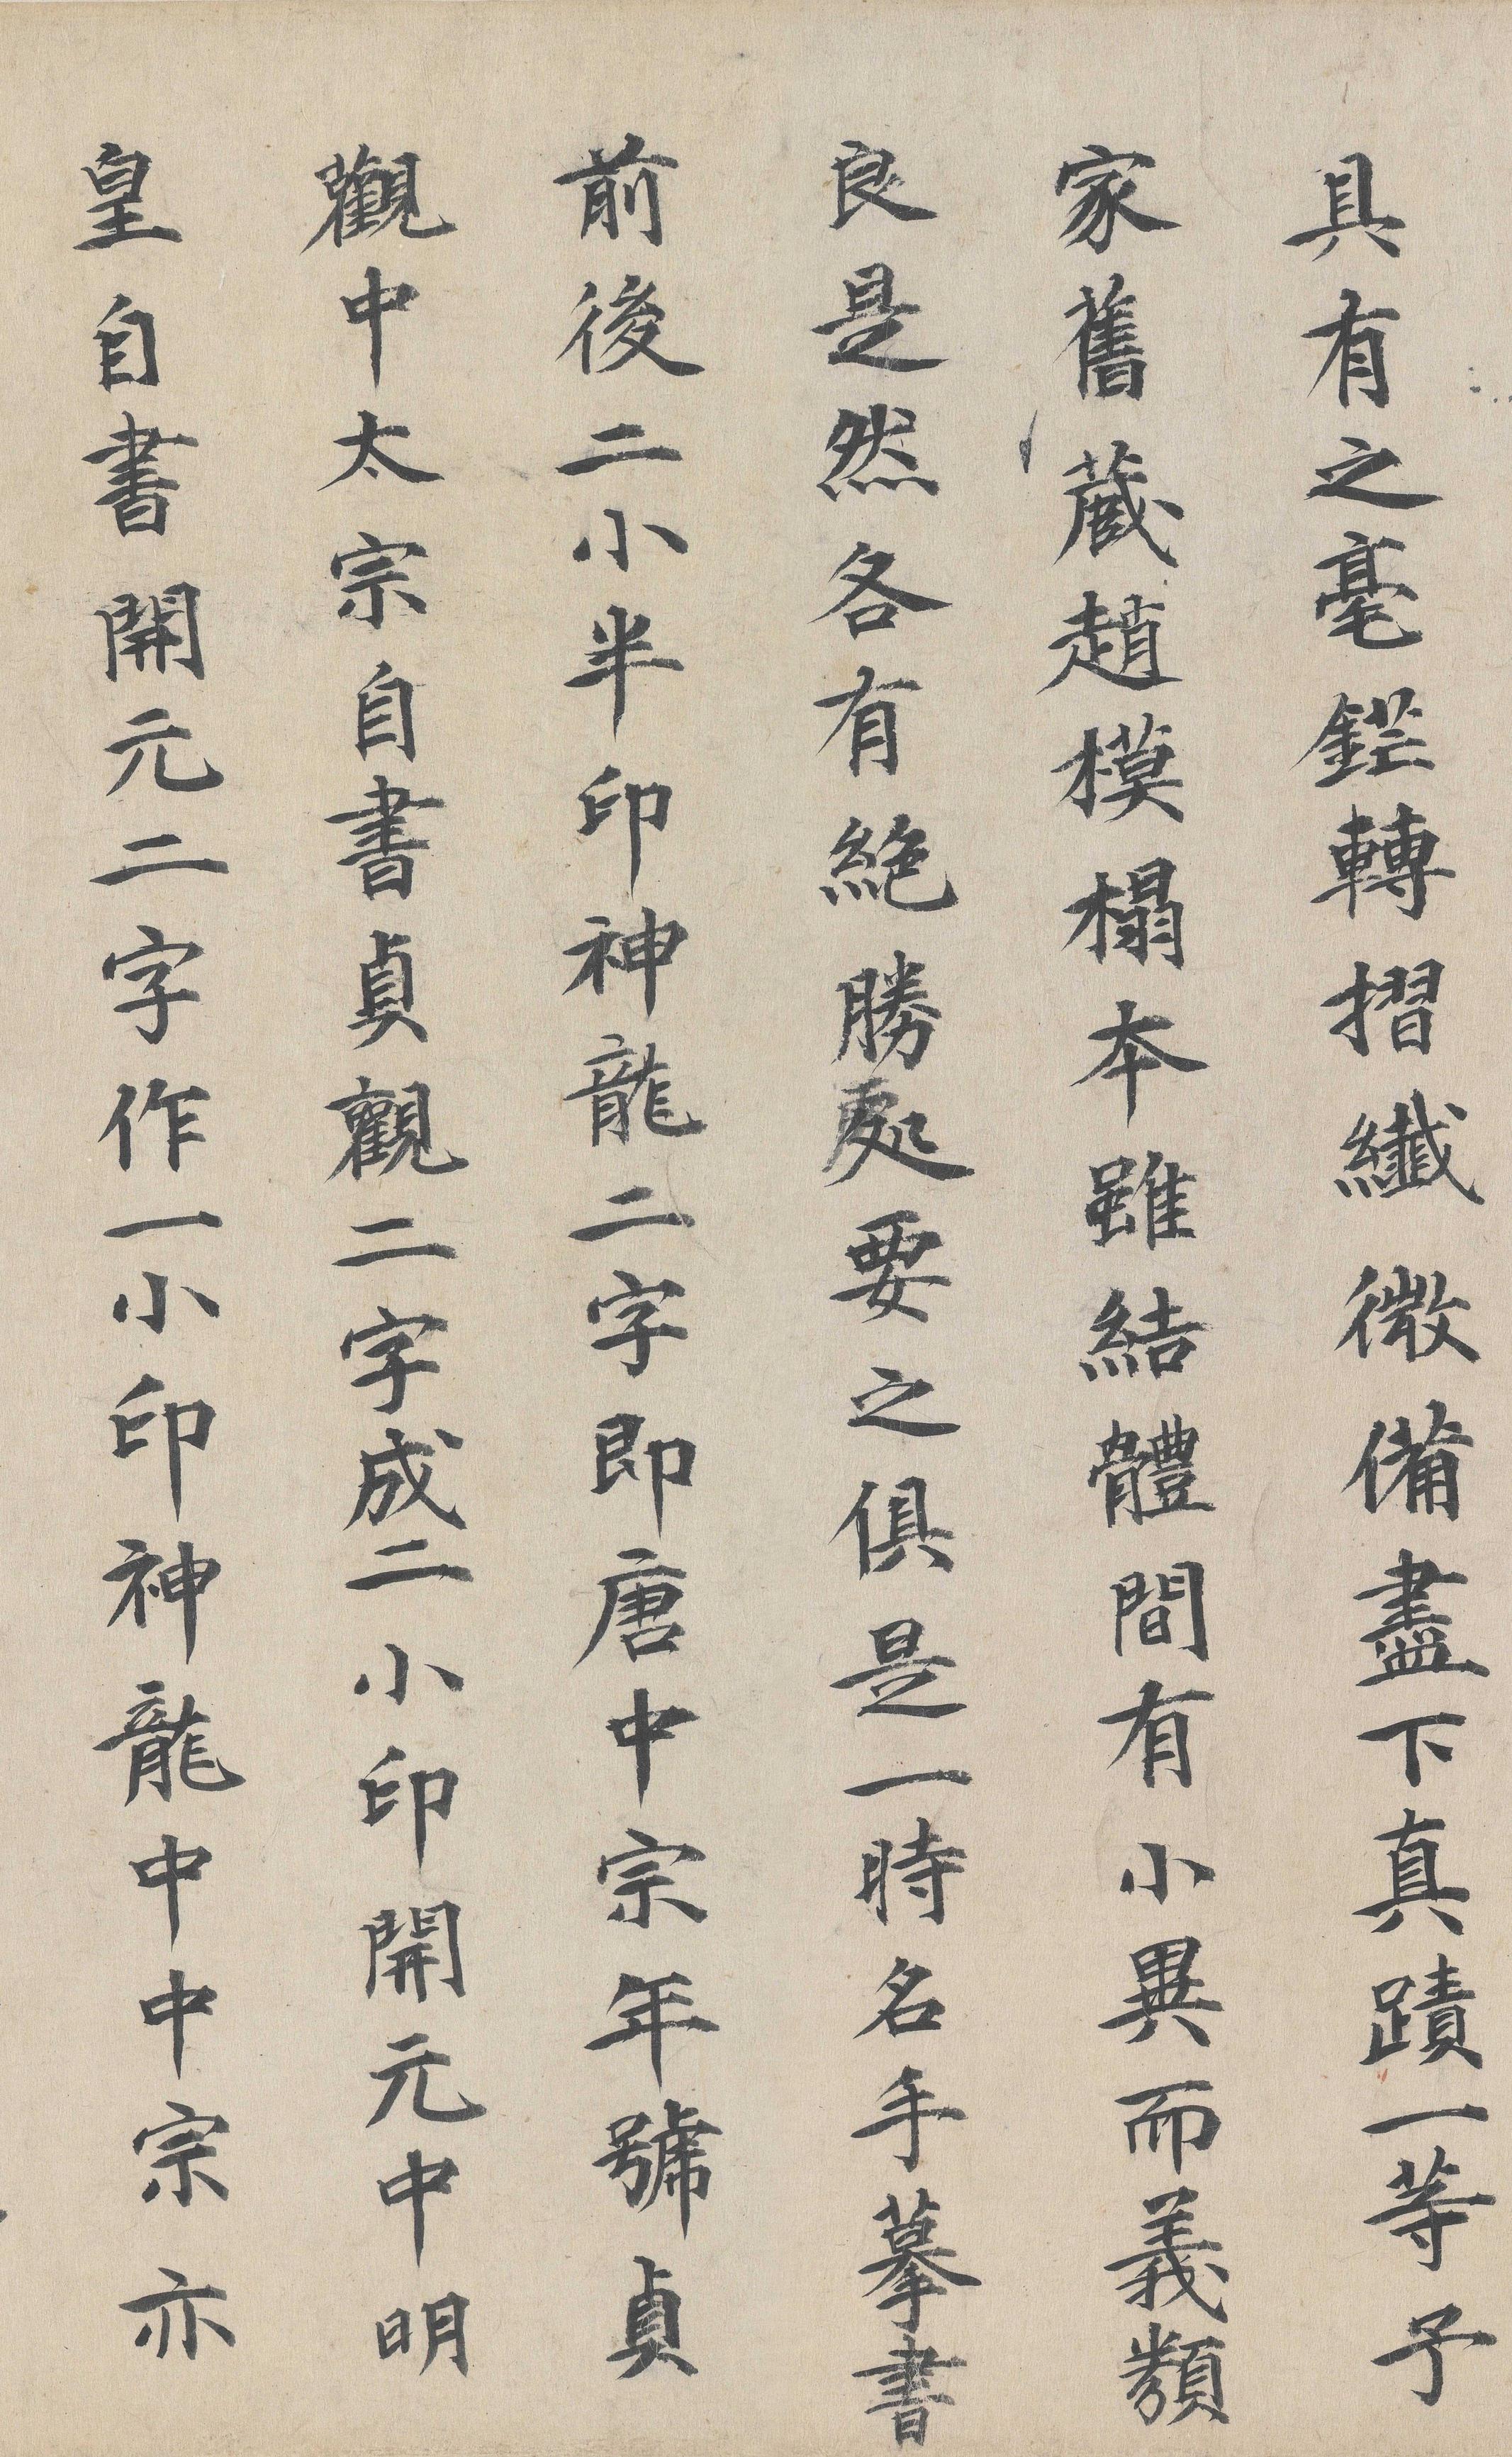 具有之毫鋩轉摺纖微備盡下真蹟一等予
家舊藏趙模榻本雖結體間有小異而義類
良是然各有絶勝處要之俱是一時名手摹書
前後二小半印神龍二字即唐中宗年號貞
觀中太宗自書貞觀二字成二小印開元中明
皇自書開元二字作一小印神龍中中宗亦